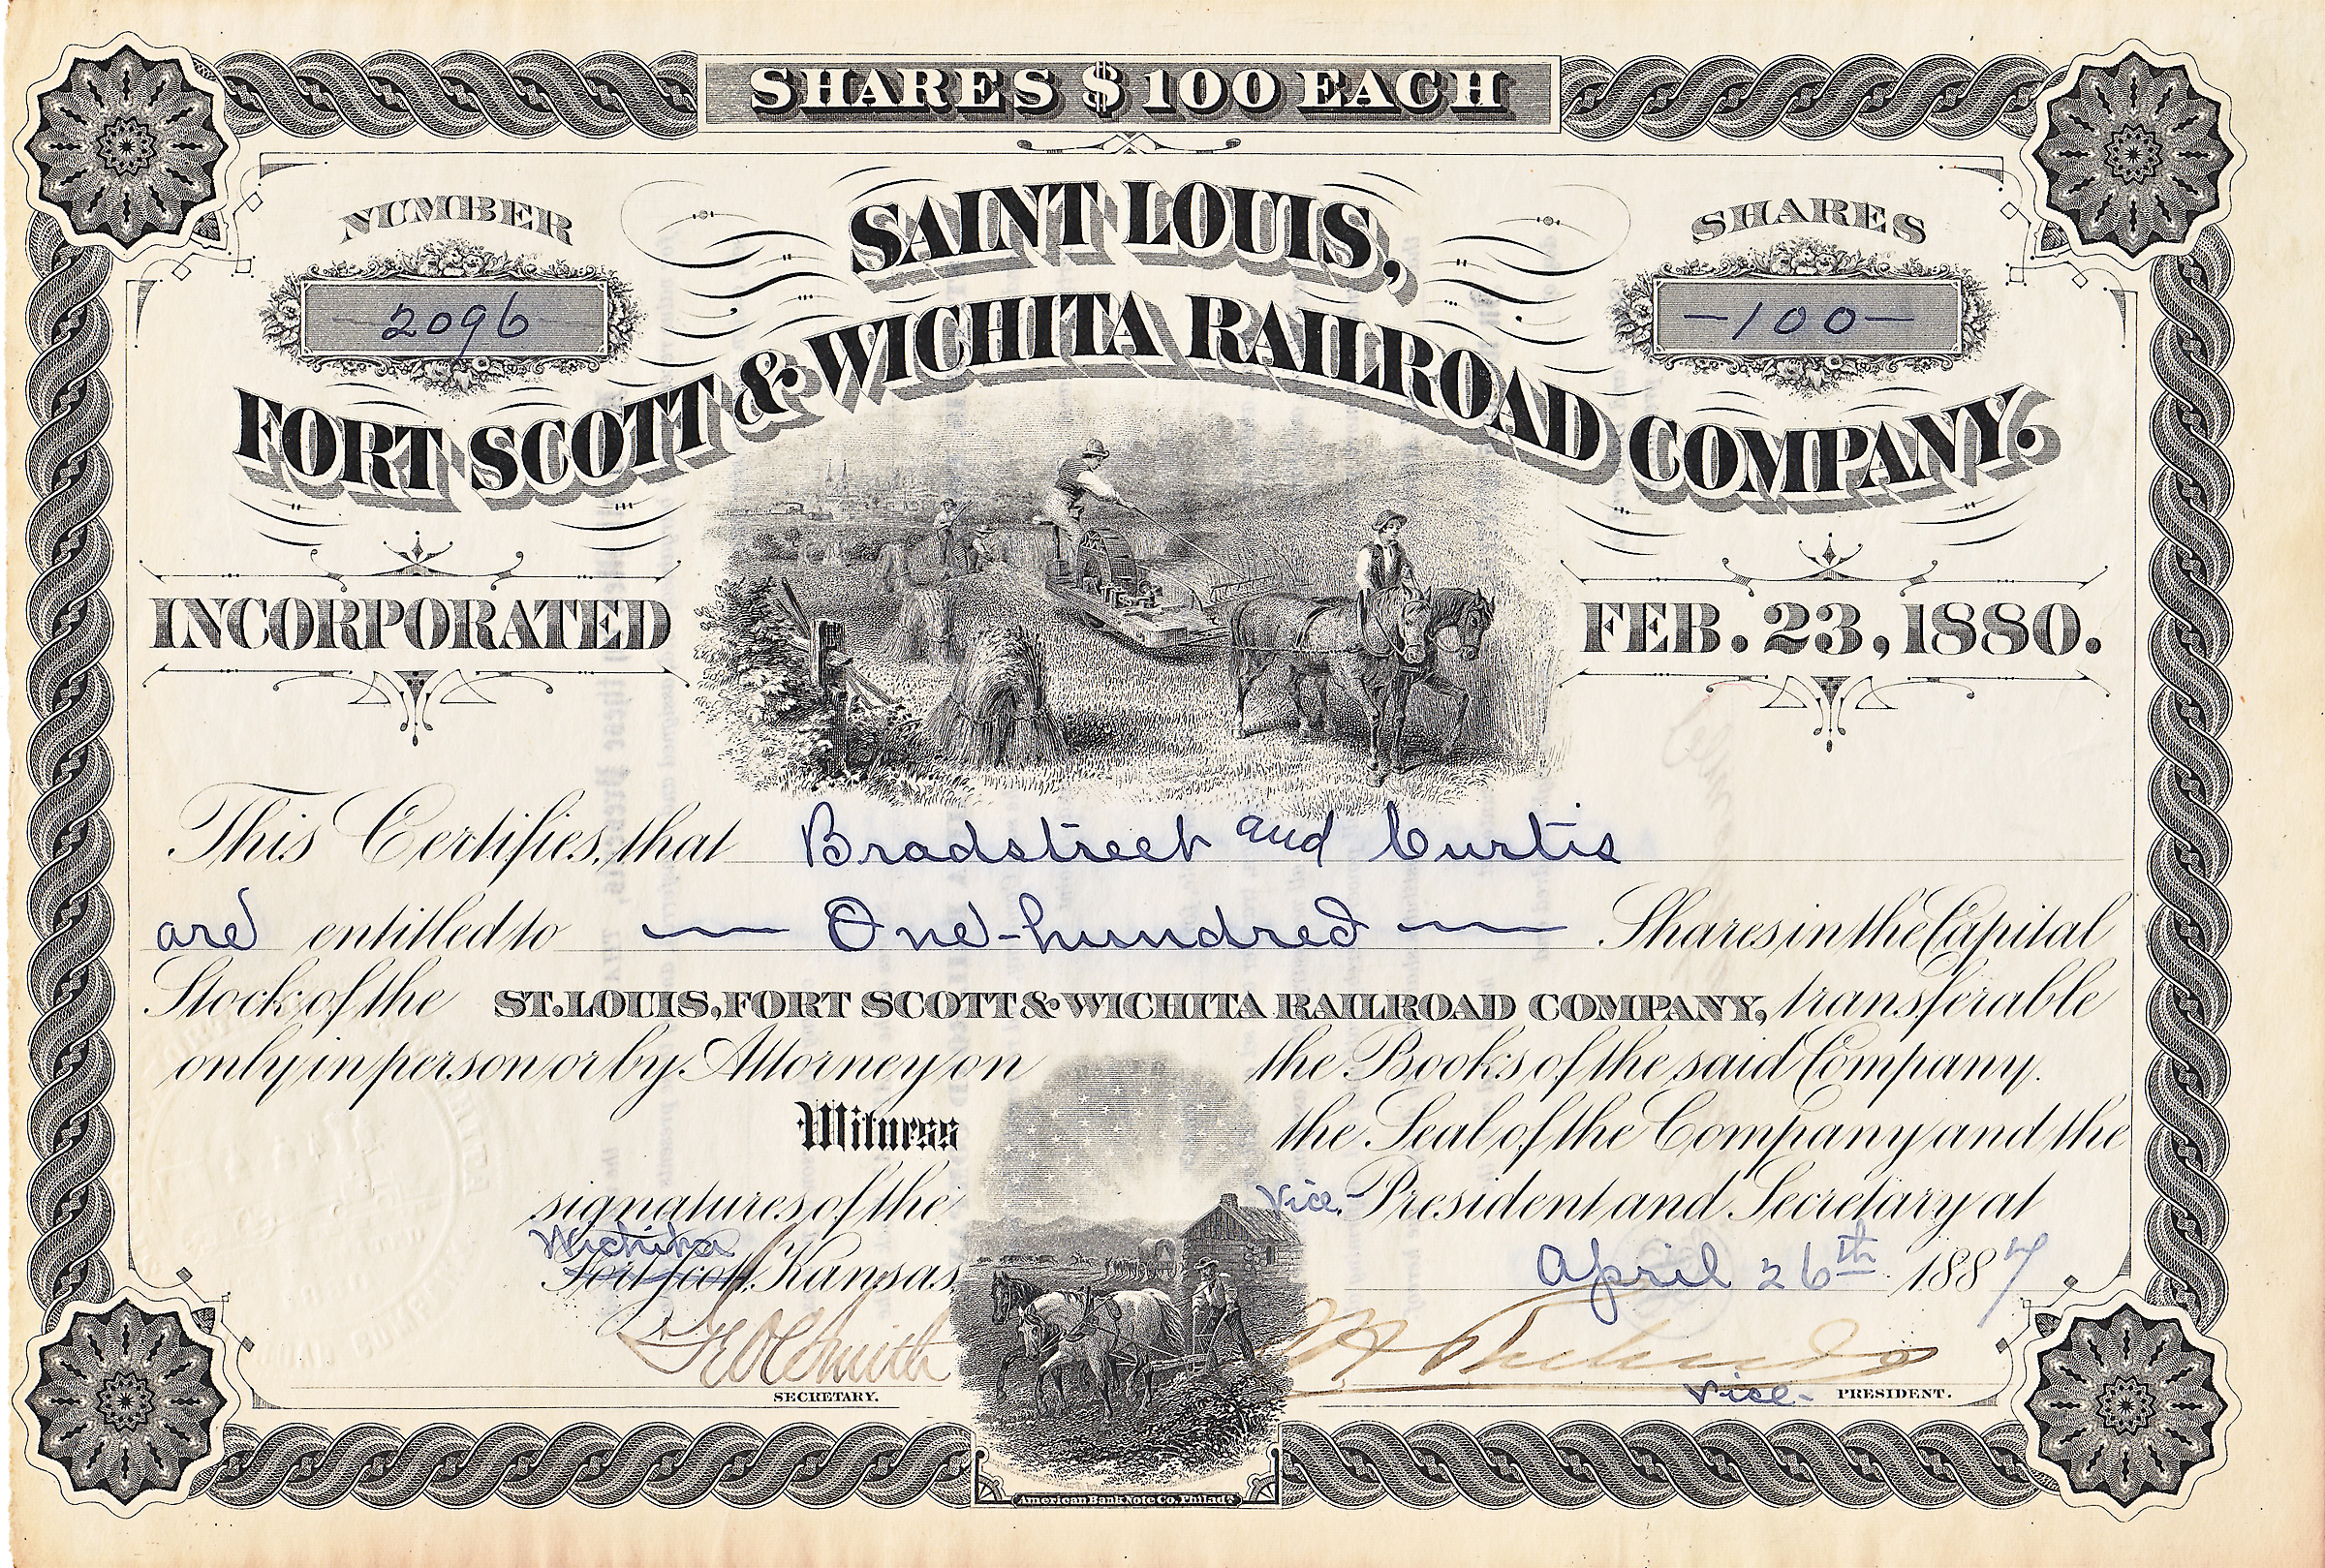 SHARES $100 EACH
NUMBER
2096
SHARES
—100—
SAINT LOUIS,
FORT SCOTT & WICHITA RAILROAD COMPANY.
INCORPORATED
FEB. 23, 1880.
This Certifies, that Bradstreet and Curtis
are entitled to — One-hundred — Shares in the Capital
Stock of the ST. LOUIS, FORT SCOTT & WICHITA RAILROAD COMPANY, transferable
only in person or by Attorney on the Books of the said Company.
Witness the Seal of the Company and the
signatures of the Vice-President and Secretary at
Wichita
Fort Scott, Kansas, April 26th 1887
Smith
SECRETARY.
Vice- PRESIDENT.
American Bank Note Co. Philada.